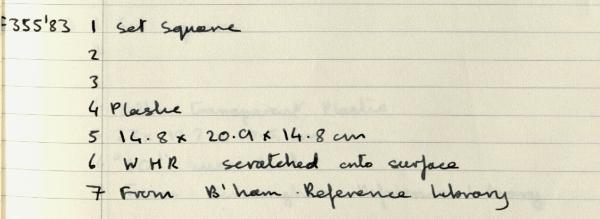 F355'83 1 Set Square
2
3
4 Plastic
5 14.8 x 20.9 x 14.8 cm
6 WHR scratched onto surface
7 From B'ham Reference Library